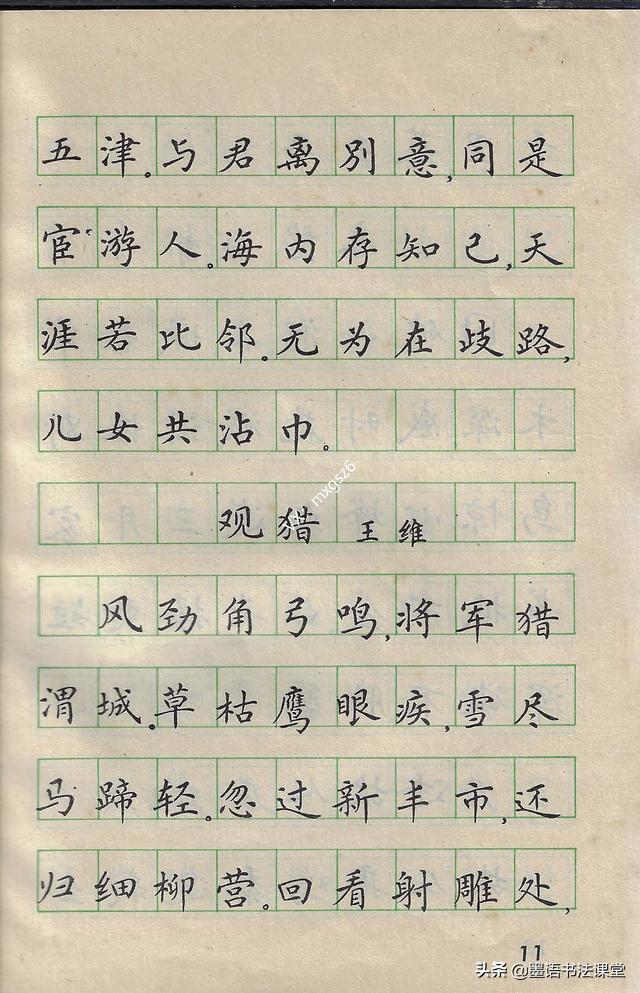 五津。与君离别意,同是
宦游人。海内存知己,天
涯若比邻。无为在歧路,
儿女共沾巾。
观猎 王维
风劲角弓鸣,将军猎
渭城。草枯鹰眼疾,雪尽
马蹄轻。忽过新丰市,还
归细柳营。回看射雕处,
11
mxgsz6
头条 @墨语书法课堂